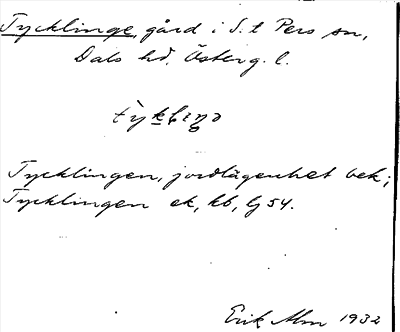 Tycklinge, gård i S:t Pers sn,
Dals hd, Österg. l.
tỳkliŋə
Tycklingen, jordlägenhet bek;
Tycklingen ek, kb, Lj 54.
Erik Alm 1932